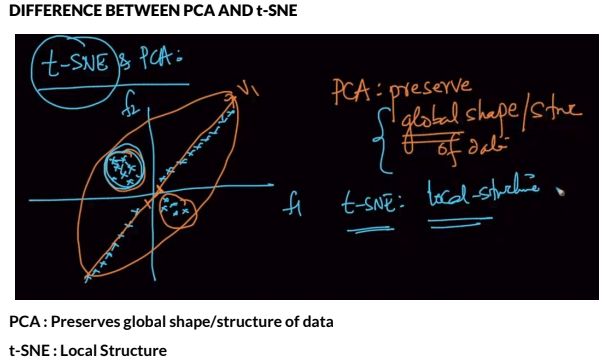 DIFFERENCE BETWEEN PCA AND t-SNE
t-SNE & PCA:
f2
V1
f1
PCA: preserve
global shape/struc
of data
t-SNE: local-structure
PCA : Preserves global shape/structure of data
t-SNE : Local Structure